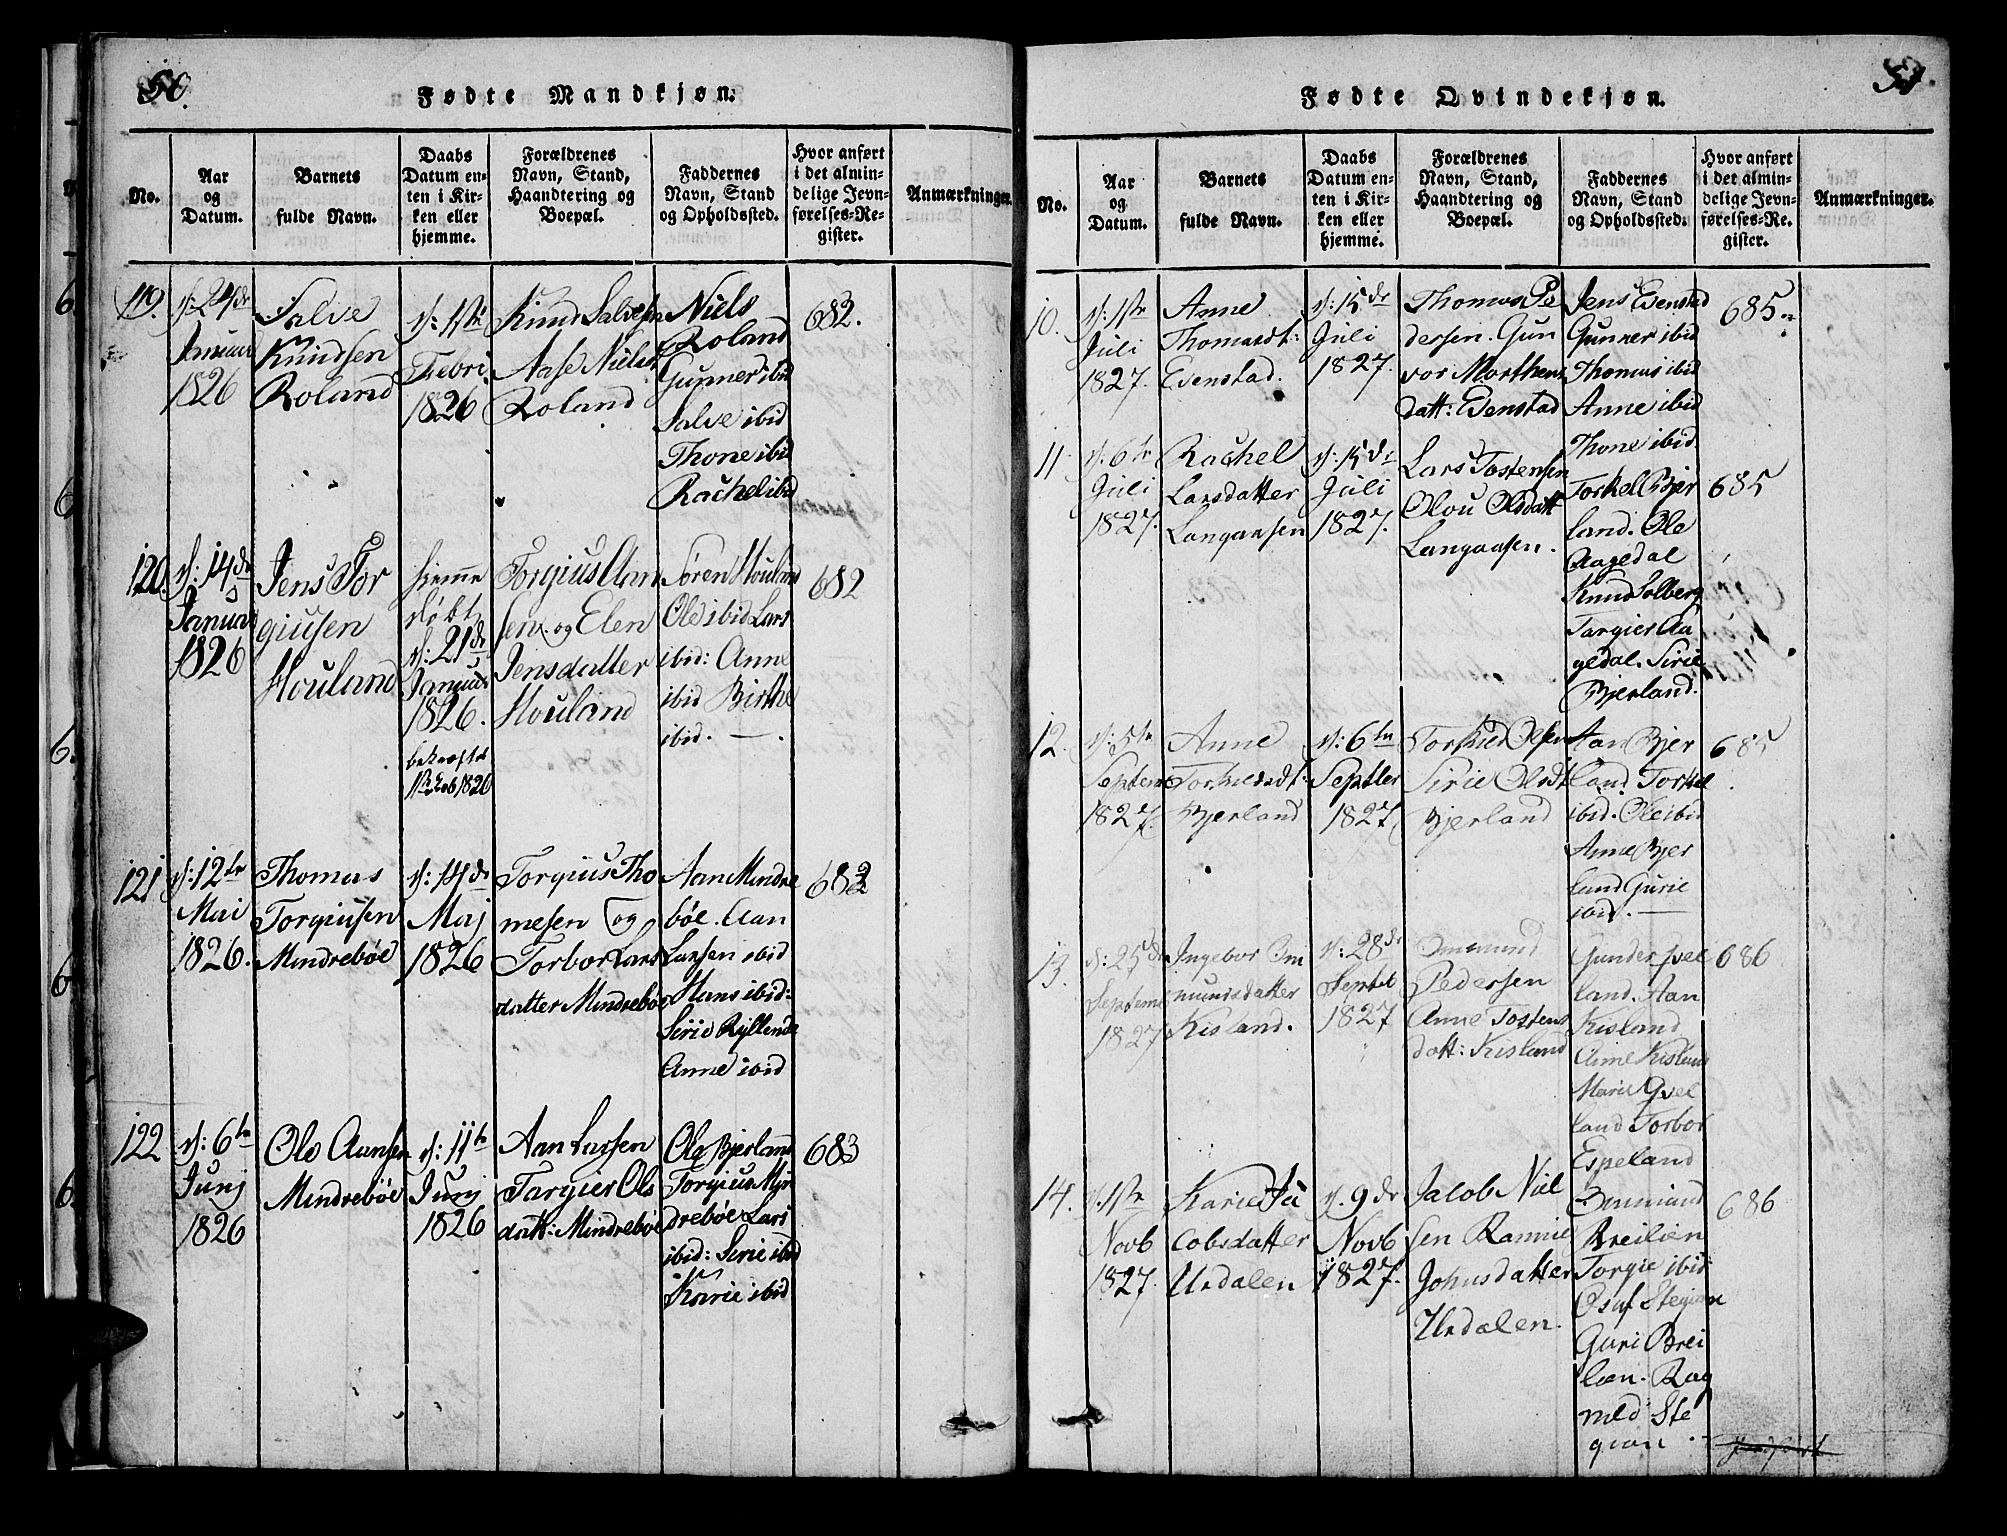 50.
Fødte Mandkjøn.
No.
Aar
og
Datum.
Barnets
fulde Navn.
Daabs
Datum en-
ten i Kir-
ken eller
hjemme.
Forældrenes
Navn, Stand,
Haandtering og
Boepæl.
Faddernes
Navn, Stand
og Opholdssted.
Hvor anført
i det almin-
delige Jevn-
førelses-Re-
gister.
Anmærkninger.
119.
d: 24de
Januar
1826
Salve
Knudsen
Roland
d: 1ste
Febri
1826
Knud Salvesen
Aase Nielsd
Roland
Niels
Roland
Gunner ibid
Salve ibid
Thone ibid
Rachel ibid
682.
120.
d: 14de
Januar
1826
Jens Tor
giusen
Houland
hjemme
døbt
d: 21de
Januar
1826.
bekræftet
1826
Torgius Aan
sen og Elen
Jensdatter
Houland
Søren Houland
Ole ibid Lars
ibid: Anne
ibid Birthe
ibid.
682
121
d: 12te
Mai
1826.
Thomas
Torgiusen
Mindrebøe
d: 14de
Maj
1826
Torgius Tho
mesen og
Torbor Lars
datter Mindrebøe
Aan Mindre
bøe. Aan
Larsen ibid
Hans ibid:
Serie Kyllende
Anne ibid
682
122
d: 6te
Junj
1826
Ole Aansen
Mindrebøe
d: 11te
Junj
1826
Aan Larsen
Targier Ols
datt: Mindrebøe
Ole Bjerland
Torgius Min
drebøe Lars
ibid: Serie ibid
Karie ibid
683
51.
Fødte Qvindekjøn.
No.
Aar
og
Datum.
Barnets
fulde Navn.
Daabs
Datum en-
ten i Kir-
ken eller
hjemme.
Forældrenes
Navn, Stand,
Haandtering og
Boepæl.
Faddernes
Navn, Stand
og Opholdssted.
Hvor anført
i det almin-
delige Jevn-
førelses-Re-
gister.
Anmærkninger.
10.
d: 1ste
Juli
1827.
Anne
Thomasdt:
Evenstad.
d: 15de
Juli
1827.
Thomas Pe
dersen. Gun
vor Morthens
datt: Evenstad
Jens Evenstad
Gunner ibid
Thomas ibid
Anne ibid
Thone ibid
685
11.
d: 6te
Juli
1827.
Rachel
Larsdatter
Langaasen
d: 15de
Juli
1827.
Lars Tostensen
Olou Olsdatt
Langaasen.
Torkel Bjer
land. Ole
Aagedal
Knud Solberg
Targier Aa
gedal. Sirie
Bjerland.
685
12.
d: 5te
Septem
1827.
Anne
Torkildsdt:
Bjerland
d: 6te
Septbr
1827
Torkild Olsen
Sirie Olsdt
Bjerland
Aan Bjer
land. Torkel
ibid. Ole ibid
Anne Bjer
land Gurie
ibid.
685
13.
d: 25de
Septem
1827
Ingebor Om
mundsdatter
Kisland.
d: 28de
Septb
1827
Ommund
Pedersen
Anne Tostens
datt: Kisland
Gunder Qvel
land. Aan
Kisland
Anne Kisland
Marie Qvel
land Torbor
Espeland
686
14.
d. 1ste
Novb
1827.
Karie Ja
cobsdatter
Urdalen
d. 9de
Novb
1827.
Jacob Niel
sen Rannie
Johnsdatter
Urdalen.
Ommund
Breilien
Torgie ibid
Osuf Stegian
Guri Breilien.
Rag
nild Ste
gian
686